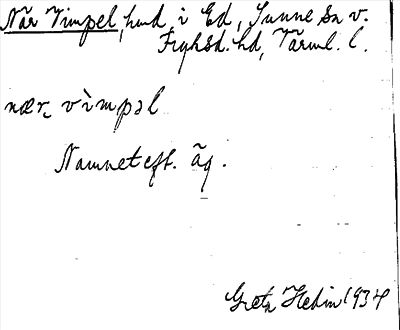 När Vimpel, hmd i Ed, Sunne sn v.
Fryksd. hd, Värml. l.
nær vìmpəl
Namnet eft. äg.
Greta Hedin 1934